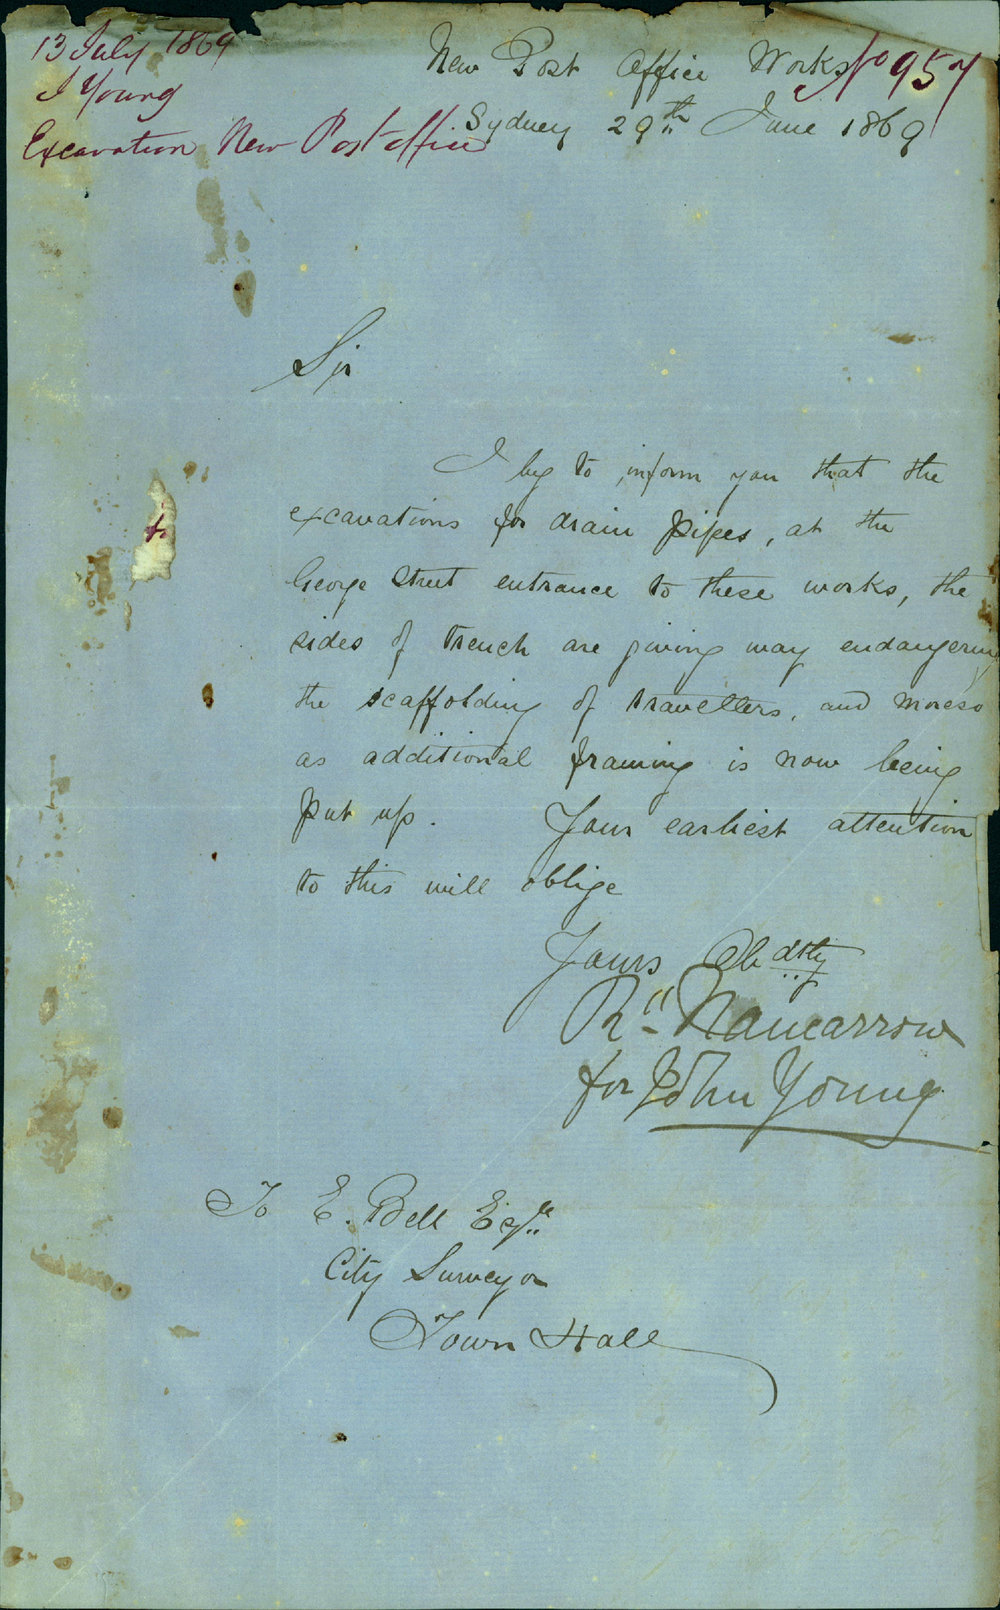 13 July 1869
J Young
Excavation New Post office
No 957
New Post Office Works
Sydney 29th June 1869
Sir
I beg to inform you that the
excavations for drain pipes, at the
George Street entrance to these works, the
sides of trench are giving way endangering
the scaffolding of travellers, and moreso
as additional framing is now being
put up. Your earliest attention
to this will oblige
Yours Obdtly
Rd Nancarrow
for John Young
To E. Bell Esqre
City Surveyor
Town Hall